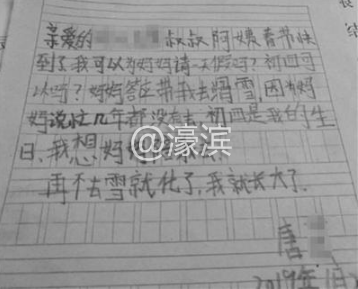 亲爱的 叔叔阿姨春节快
到了我可以为妈妈请一天假吗?初四可
以吗?妈妈答应带我去滑雪因为妈
妈说忙几年都没有去,初四是我的生
日,我想妈妈
再不去雪就化了,我就长大了.
唐
2019年1月
@濠滨